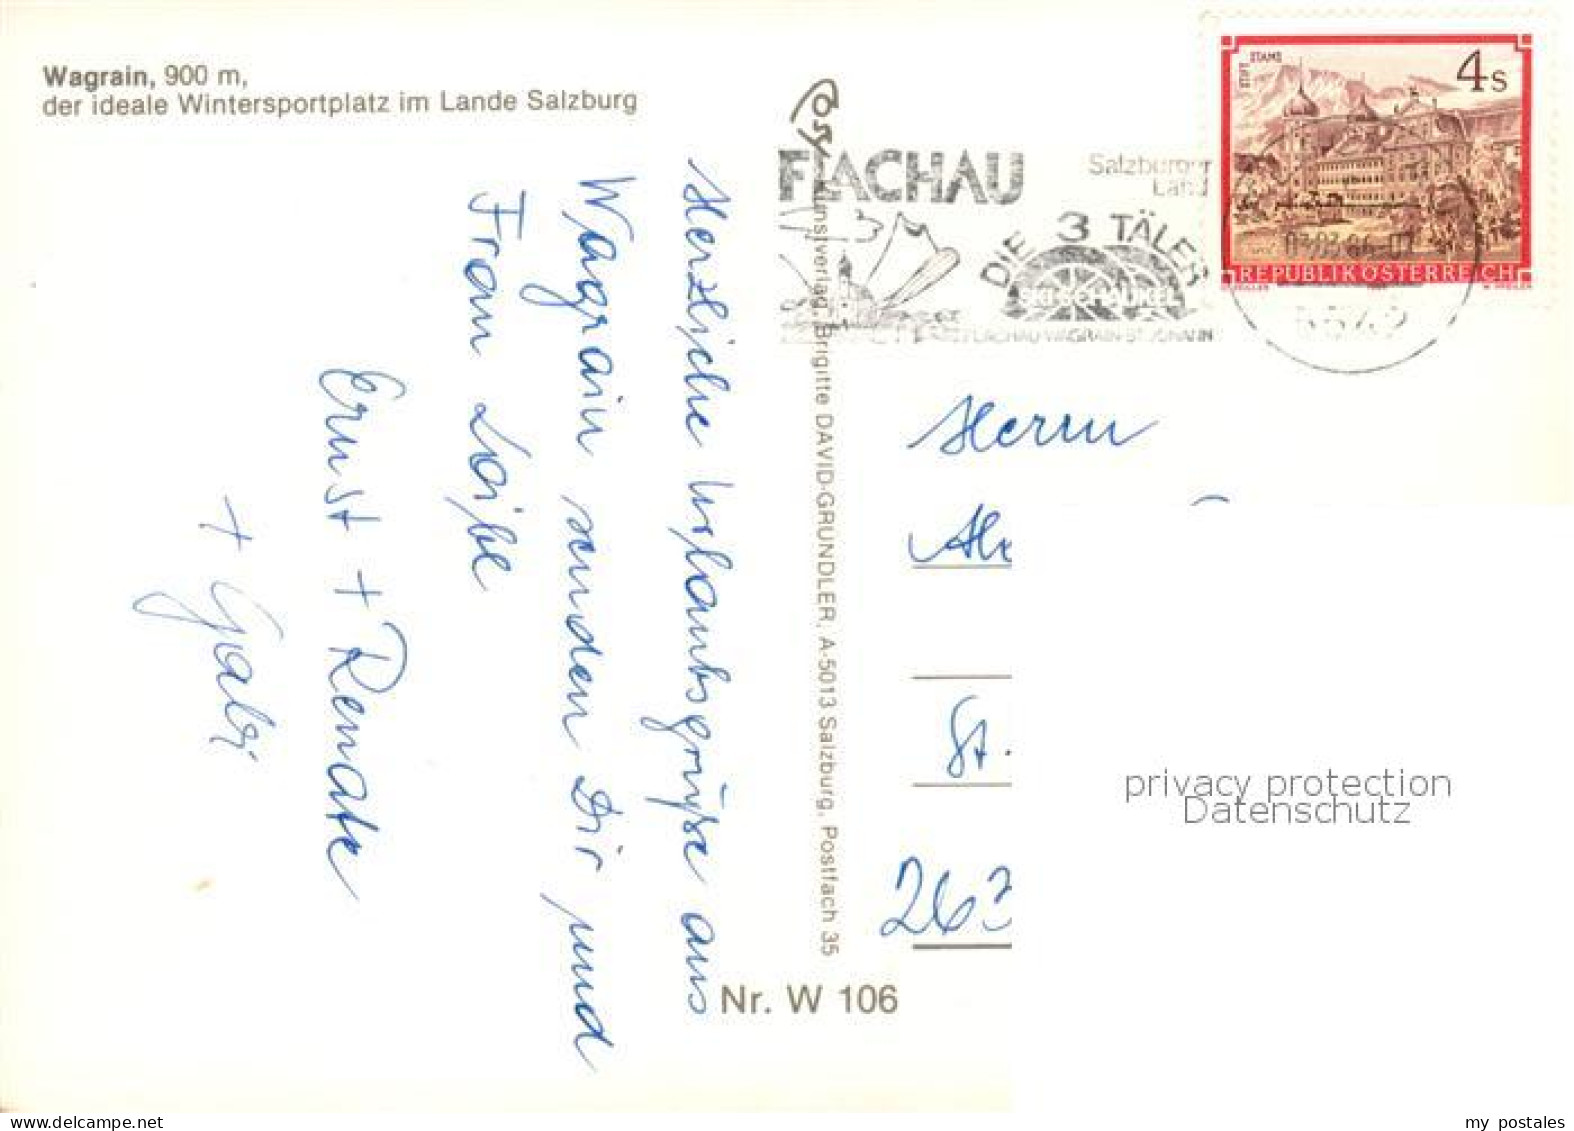 Wagrain, 900 m,
der ideale Wintersportplatz im Lande Salzburg
Herzliche Urlaubsgrüße aus
Wagrain senden Dir und
Frau Loibl
Ernst + Renate
+ Gabi
Cosy
Kunstverlag, Brigitte DAVID-GRUNDLER, A-5013 Salzburg, Postfach 35
Nr. W 106
FLACHAU
Salzburger
Land
DIE 3 TÄLER
SKISCHAUKEL
FLACHAU-WAGRAIN-ST. JOHANN
STIFT STAMS
4s
REPUBLIK ÖSTERREICH
5542
Herrn
St.
263
privacy protection
Datenschutz
my postales